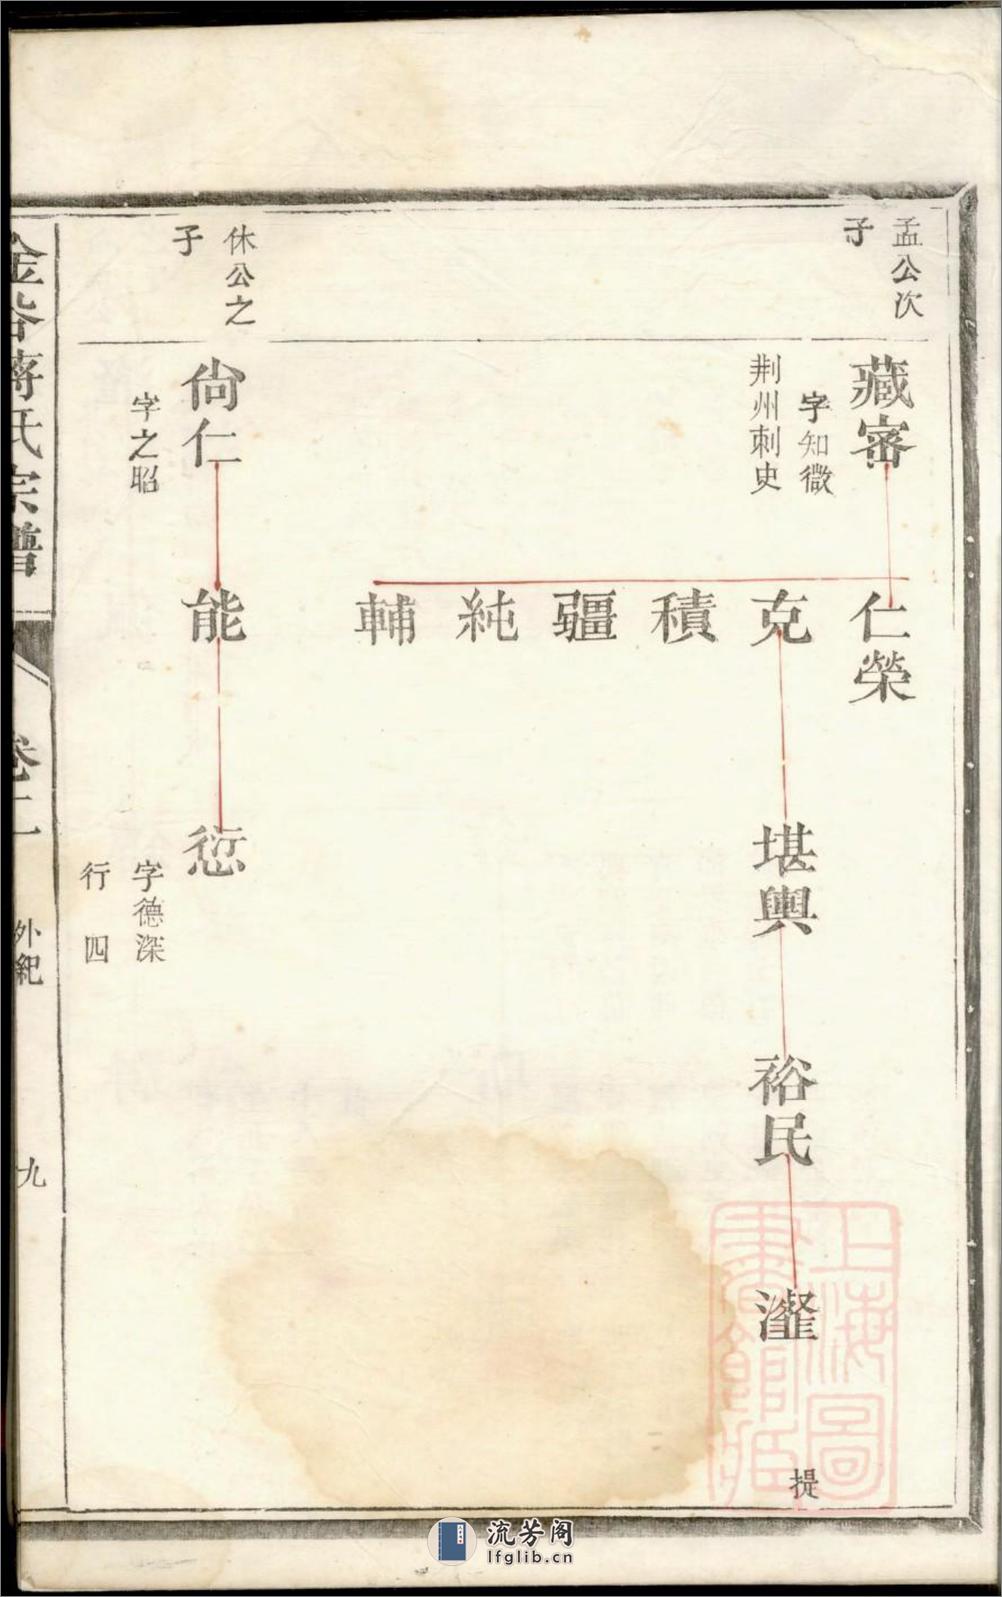 孟公次
子
藏密
字知微
荆州刺史
仁榮
克
積
疆
純
輔
堪輿
裕民
提
休公之
子
尙仁
字之昭
能
愆
字德深
行四
金谷蔣氏宗譜
卷二
外紀
九
上海圖
書館藏
流芳阁
lfglib.cn